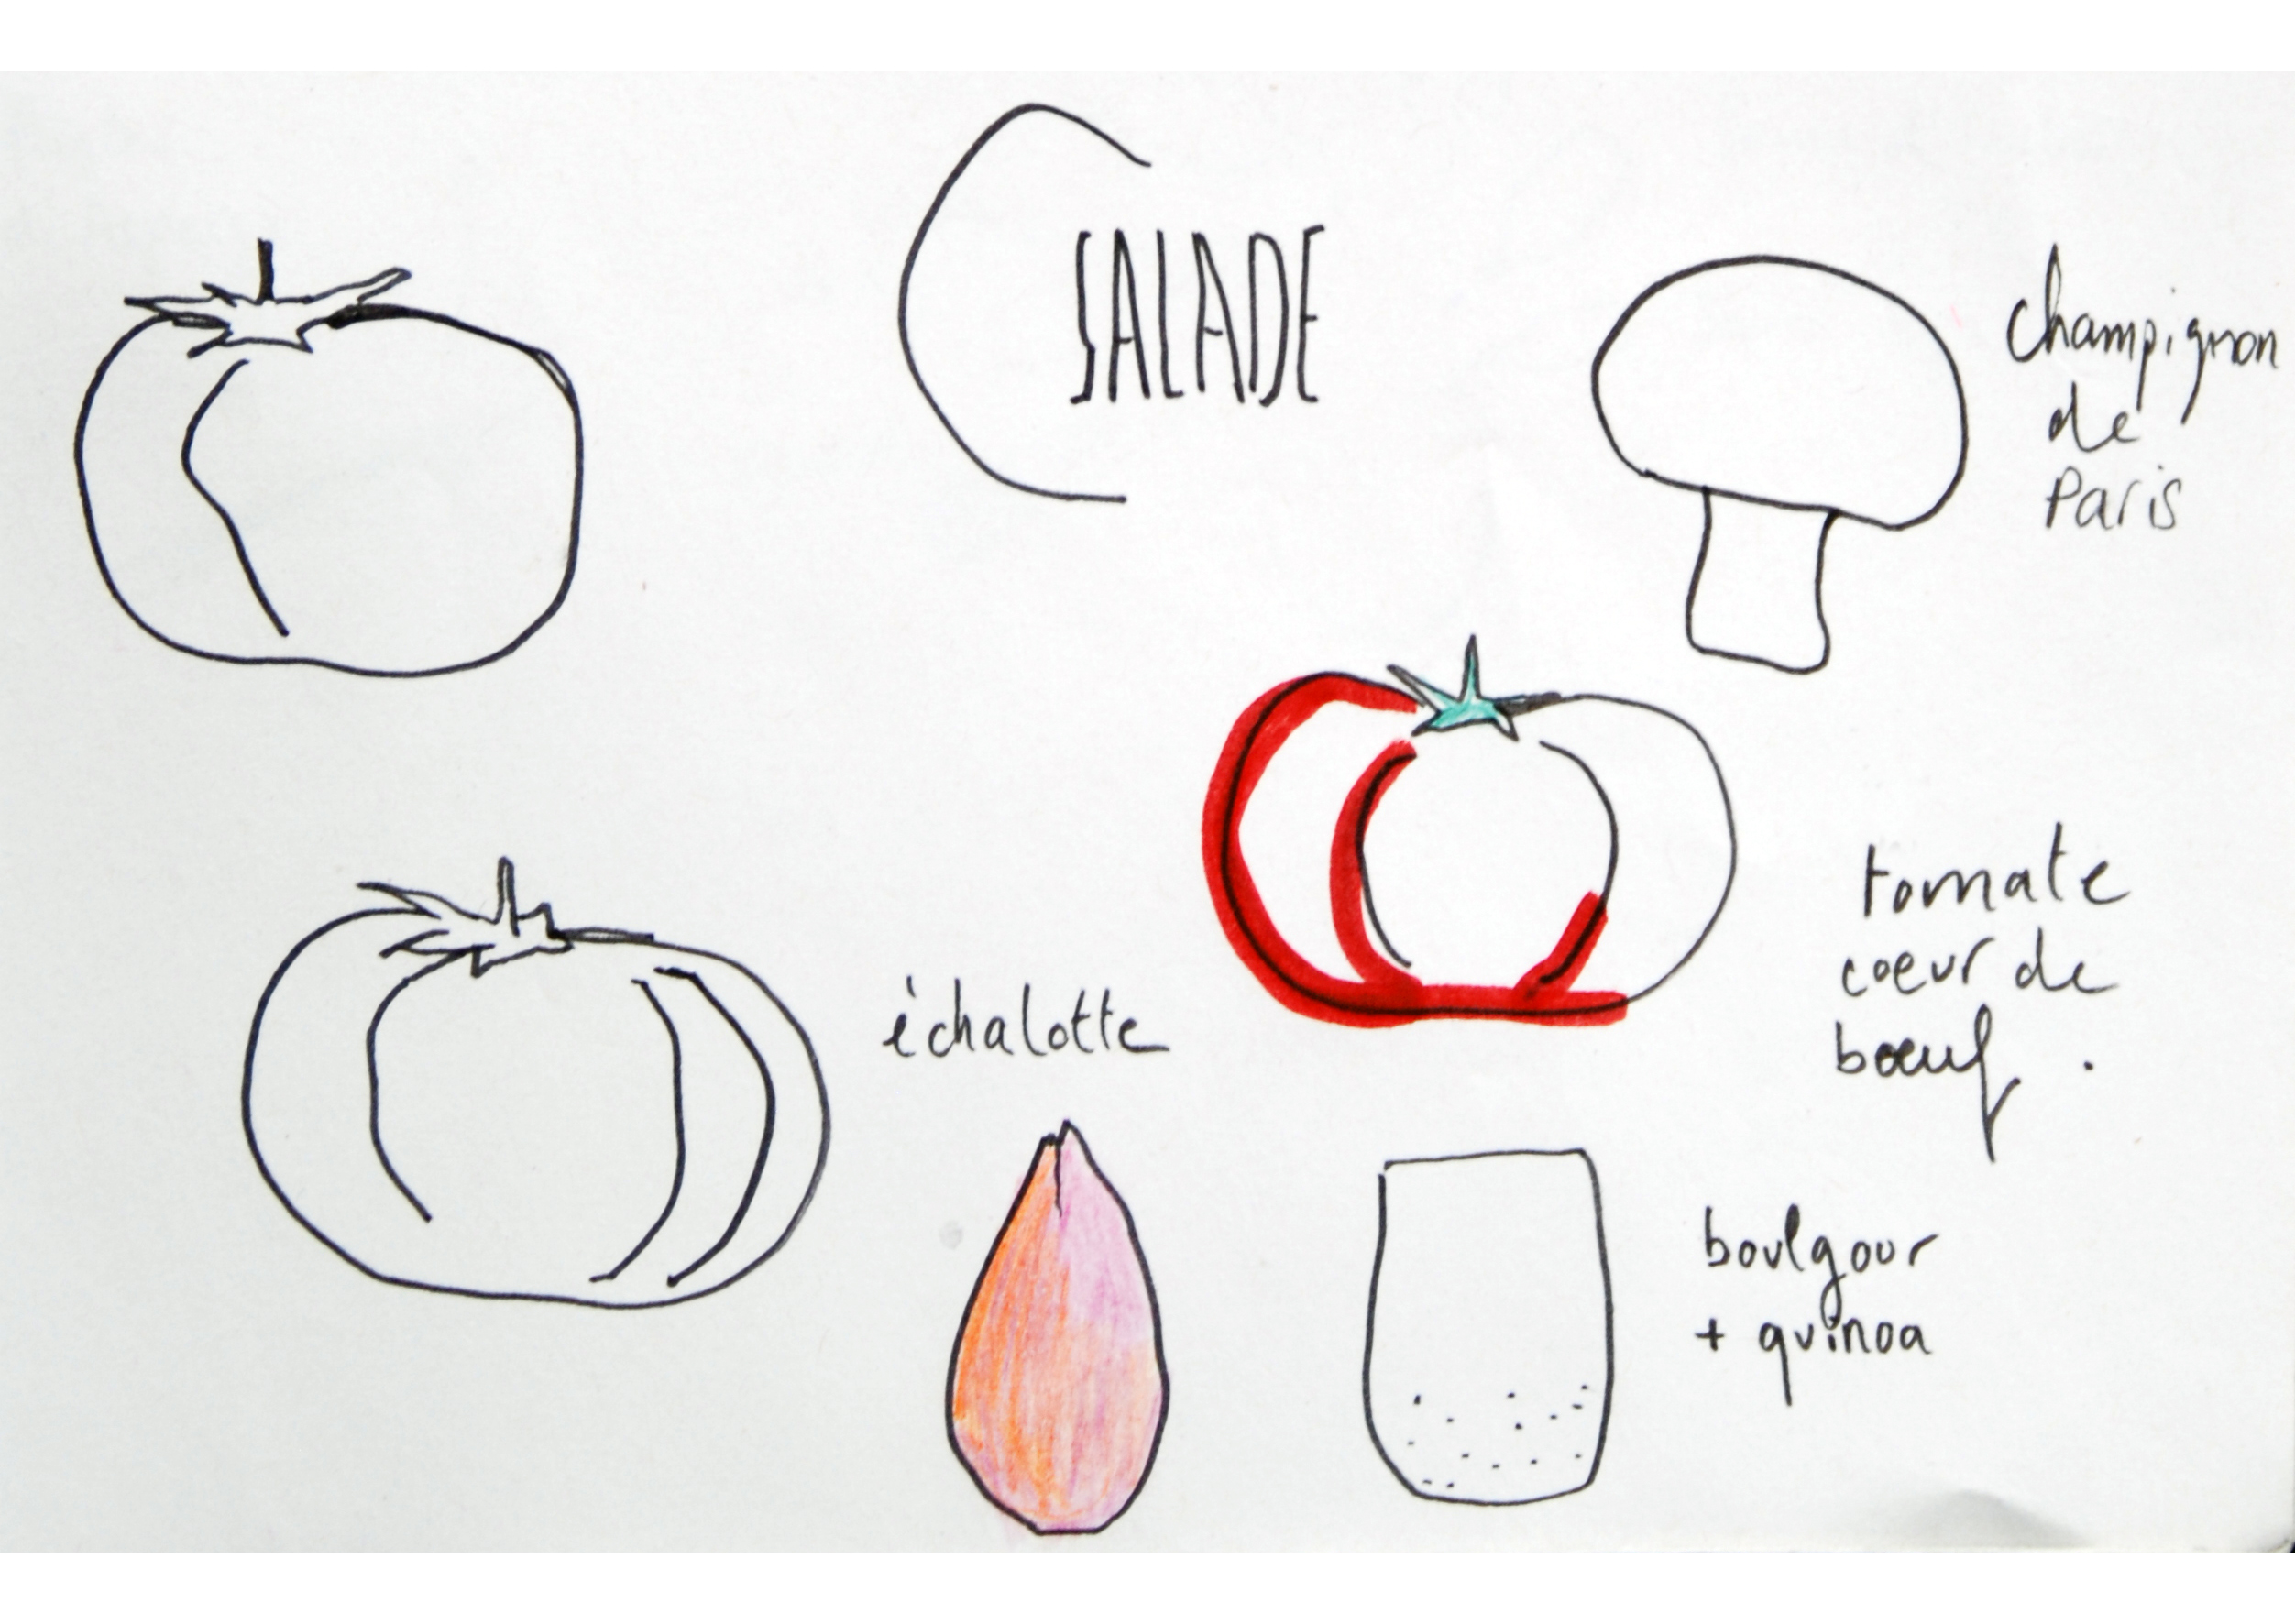 SALADE
champignon
de
Paris
tomate
coeur de
bœuf.
échalotte
boulgour
+ quinoa